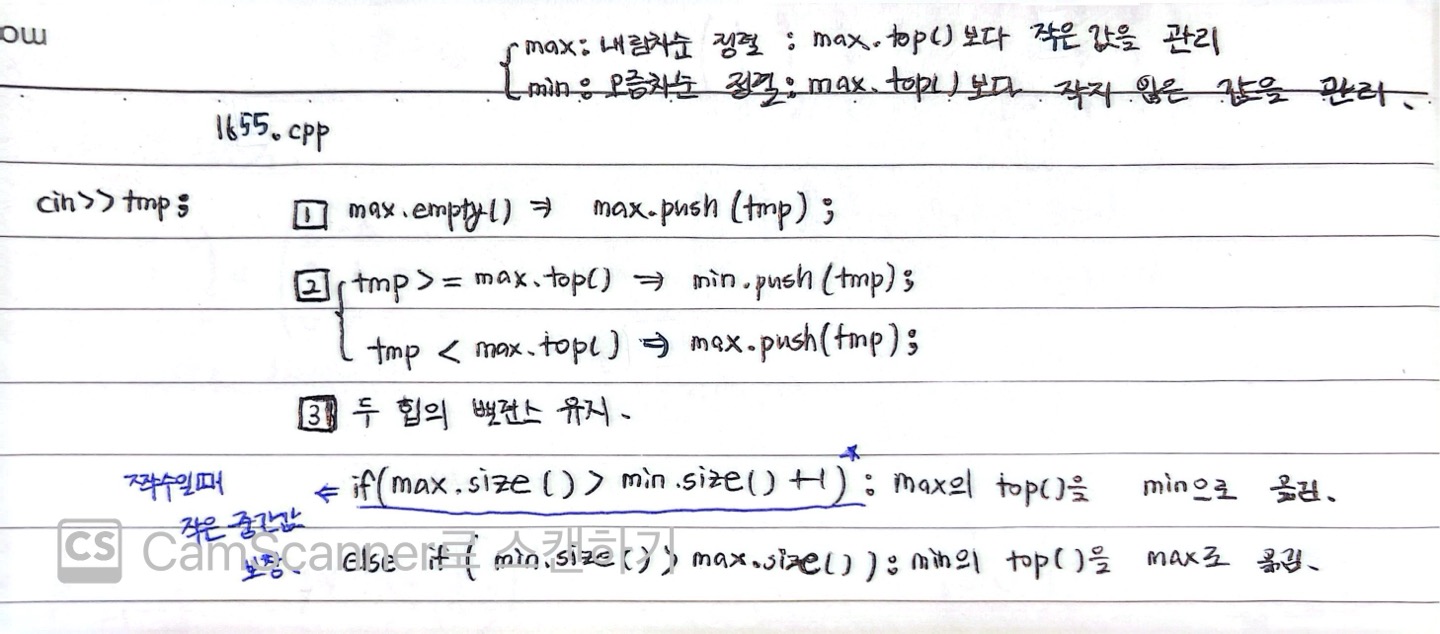 mo
max : 내림차순 정렬 : max.top()보다 작은 값을 관리
min : 오름차순 정렬 : max.top()보다 작지 않은 값을 관리.
1655.cpp
cin>>tmp; 1 max.empty() ⇒ max.push(tmp);
2 tmp >= max.top() ⇒ min.push(tmp);
tmp < max.top() ⇒ max.push(tmp);
3 두 힙의 밸런스 유지.
짝수일때 ⇐ if(max.size() > min.size()+1)* : max의 top()을 min으로 옮김.
작은 중간값
보장. else if( min.size() > max.size()) : min의 top()을 max로 옮김.
CS CamScanner로 스캔하기